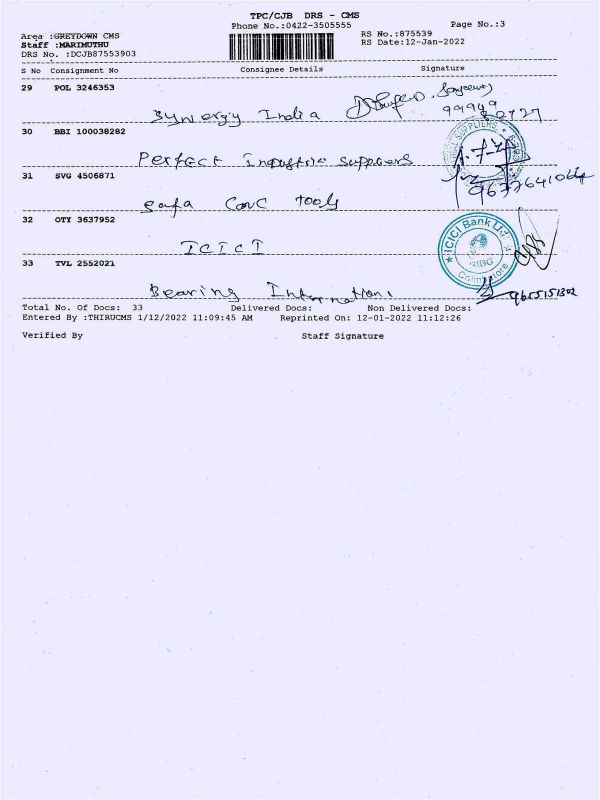 TPC/CJB DRS - CMS
Phone No.:0422-3505555
Page No.:3
Area :GREYDOWN CMS
Staff :MARIMUTHU
DRS No. :DCJB87553903
RS No.:875539
RS Date:12-Jan-2022
S No Consignment No Consignee Details Signature
29 POL 3246353
Synergy India
99949
30 BBI 100038282
SUPPLIERS
Perfect Industria suppliers
9677641064
31 SVG 4506871
Safa Conc tools
32 OTY 3637952
ICICI
ICICI Bank Ltd
RIBG
Coimbatore
33 TVL 2552021
Bearing Internation
9655151302
Total No. Of Docs: 33 Delivered Docs: Non Delivered Docs:
Entered By :THIRUCMS 1/12/2022 11:09:45 AM Reprinted On: 12-01-2022 11:12:26
Verified By Staff Signature